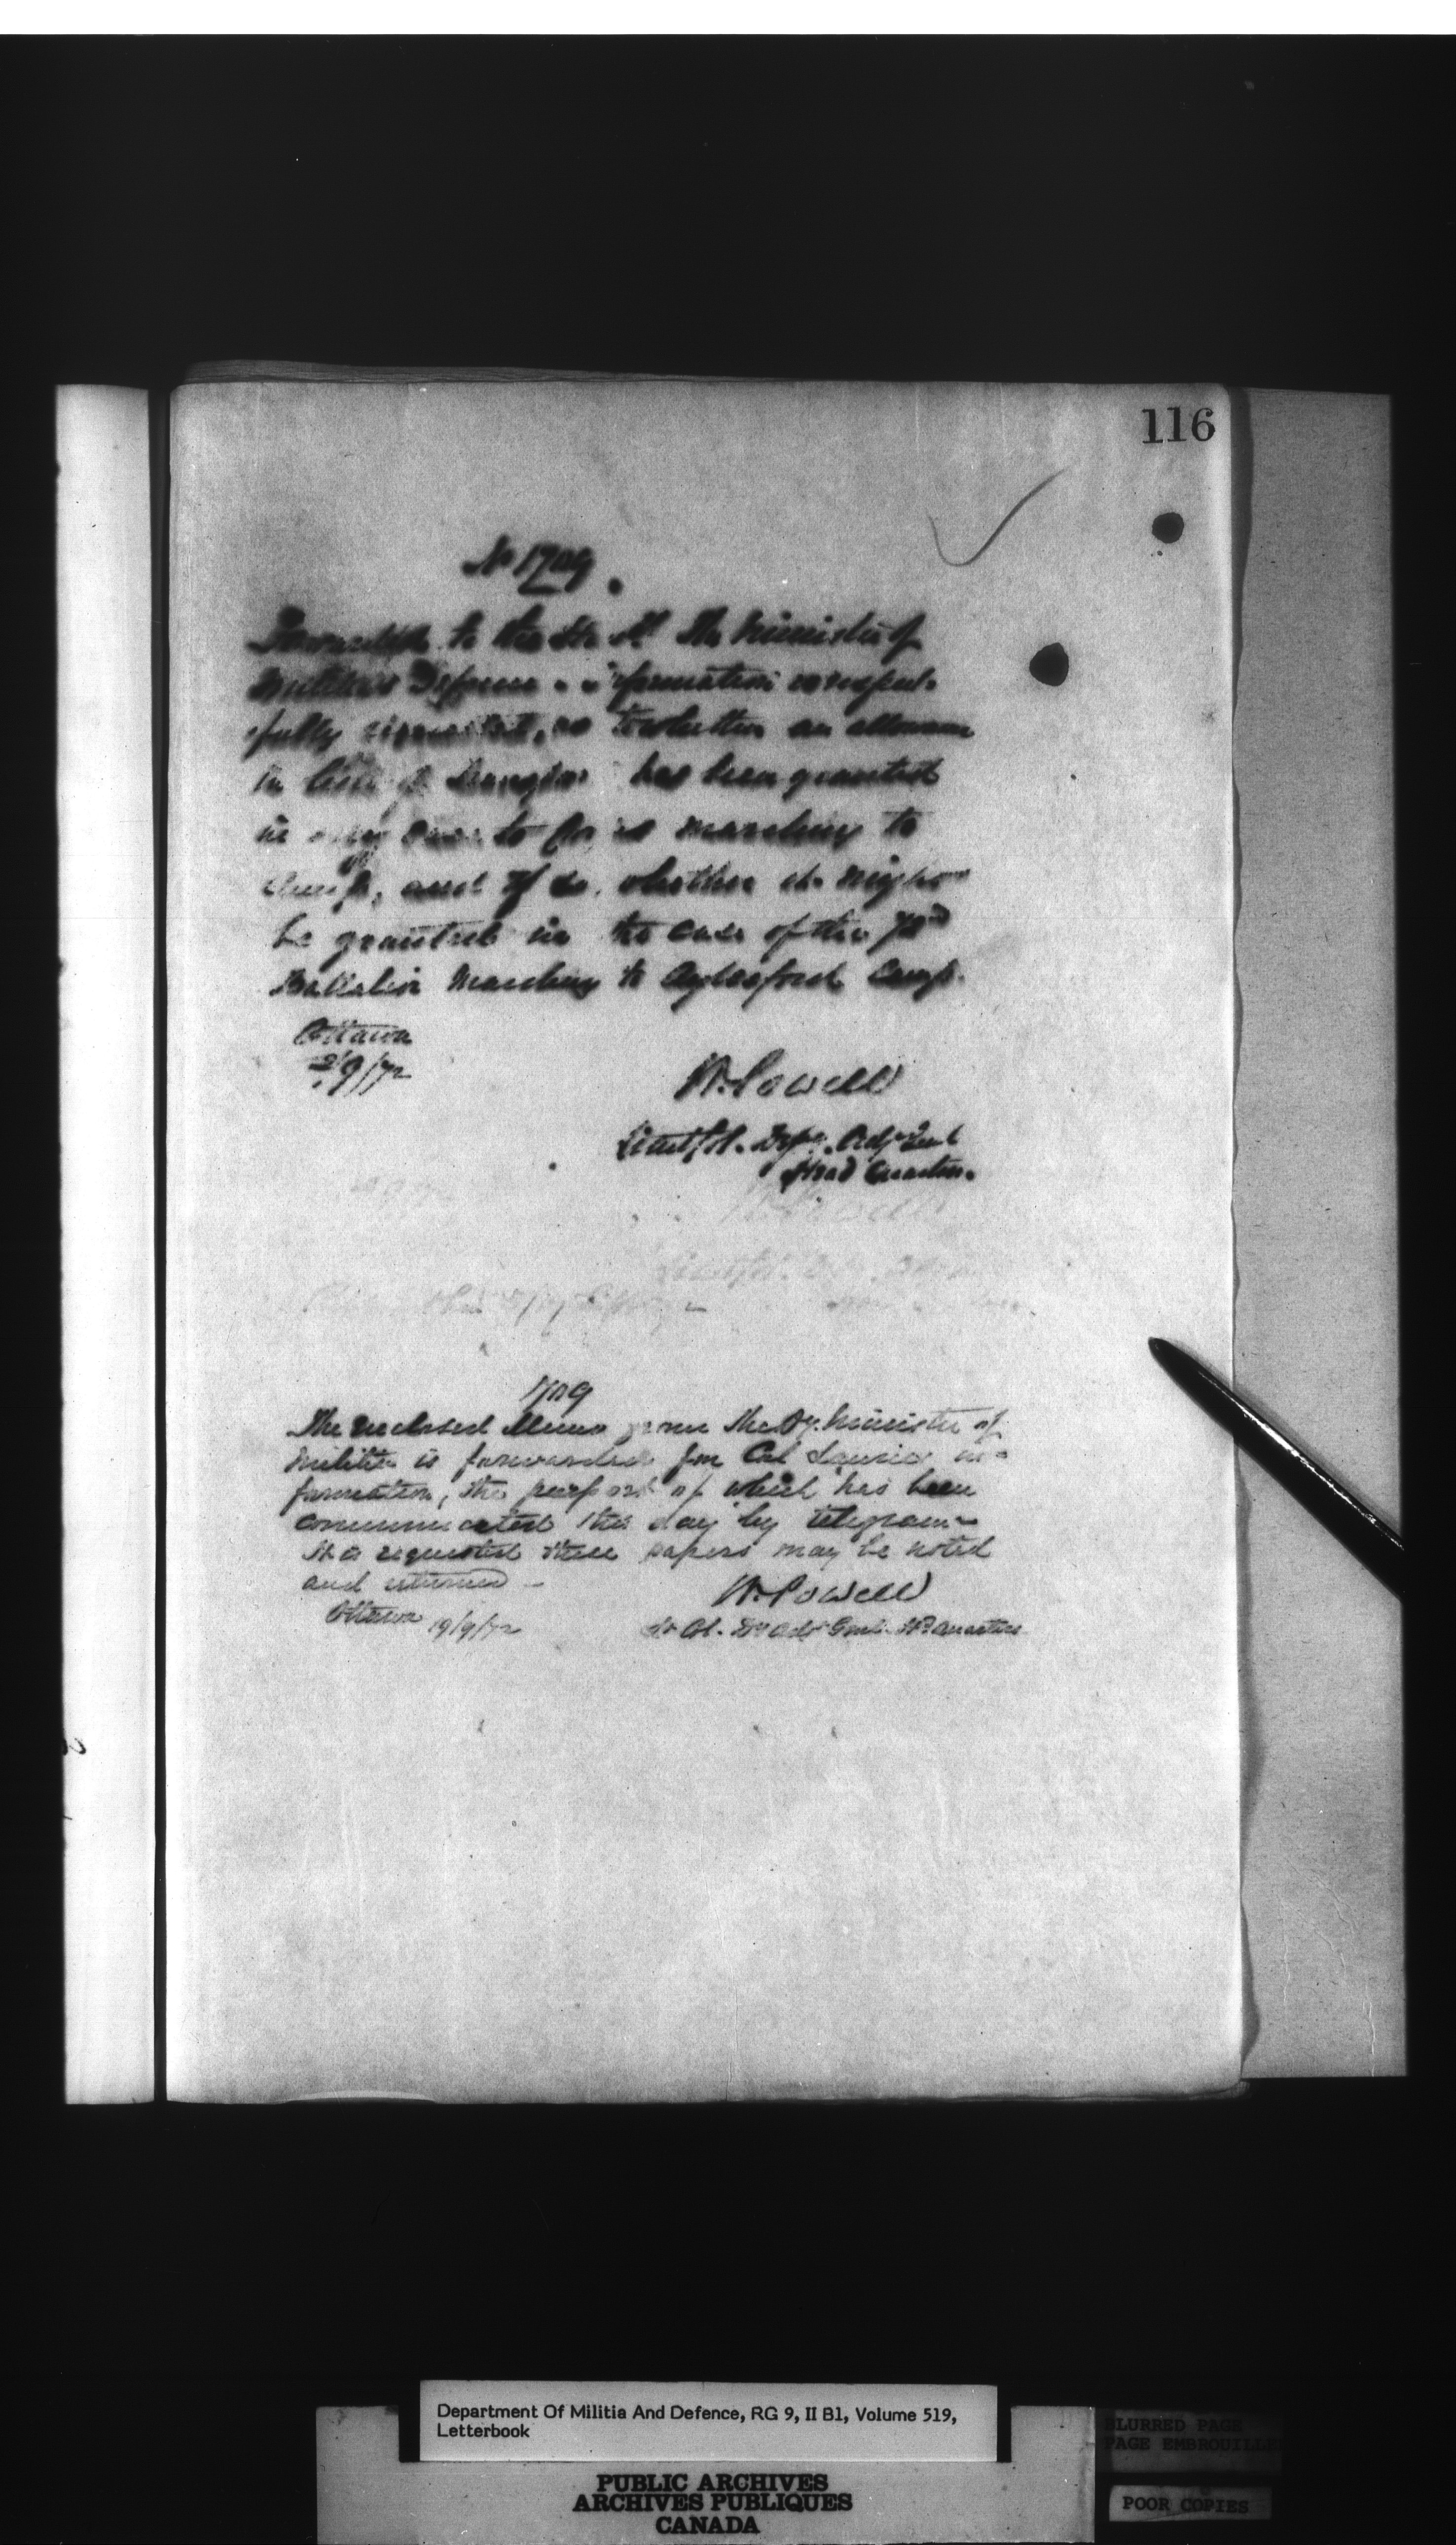 116
No 1709
Forwarded to the The Minister of
Militia & Defence information is respect-
fully requested, as to whether an allowance
in lieu of has been granted
in any case to marching to
Camp, and if so, whether it might
be granted in the case of the 72nd
Battalion marching to Aylesford Camp.
Ottawa
/9/72
W. Powell
Lieut Col. Dep. Adjt Genl
Head Quarters.
W. Powell
1709
The enclosed Memo from the Dy. Minister of
Militia is forwarded for Col Laurie's in-
formation, the purport of which has been
communicated this day by telegram
It is requested these papers may be noted
and returned -
W. Powell
Ottawa 19/9/72
Lt Col. Dy Adjt Genl. Hd Quarters
Department Of Militia And Defence, RG 9, II B1, Volume 519,
Letterbook
PUBLIC ARCHIVES
ARCHIVES PUBLIQUES
CANADA
BLURRED PAGE
PAGE EMBROUILLE
POOR COPIES